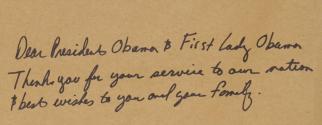 Dear President Obama & First Lady Obama
Thank you for your service to our nation
& best wishes to you and your family.